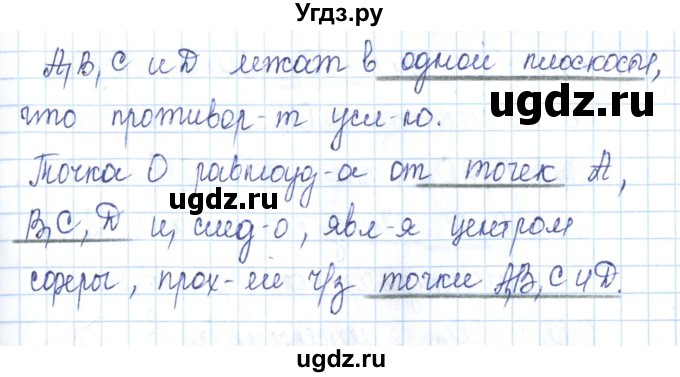 Угдз.ру
A,B,C и D лежат в одной плоскости,
ugdz.ru
что противор-т усл-ю.
Точка O равноуд-а от точек A,
ugdz.ru
B,C,D и, след-о, явл-я центром
ugdz.ru
сферы, прох-ей ч/з точки A,B,C и D.
ugdz.ru